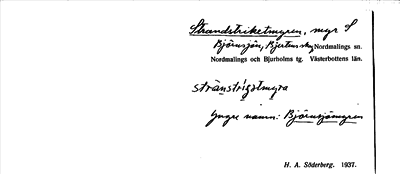 Strandstriketmyren, myr S
Björnsjön, Nordmalings sn.
Nordmalings och Bjurholms tg. Västerbottens län.
Yngre namn: Björnsjömyren
H. A. Söderberg. 1937.